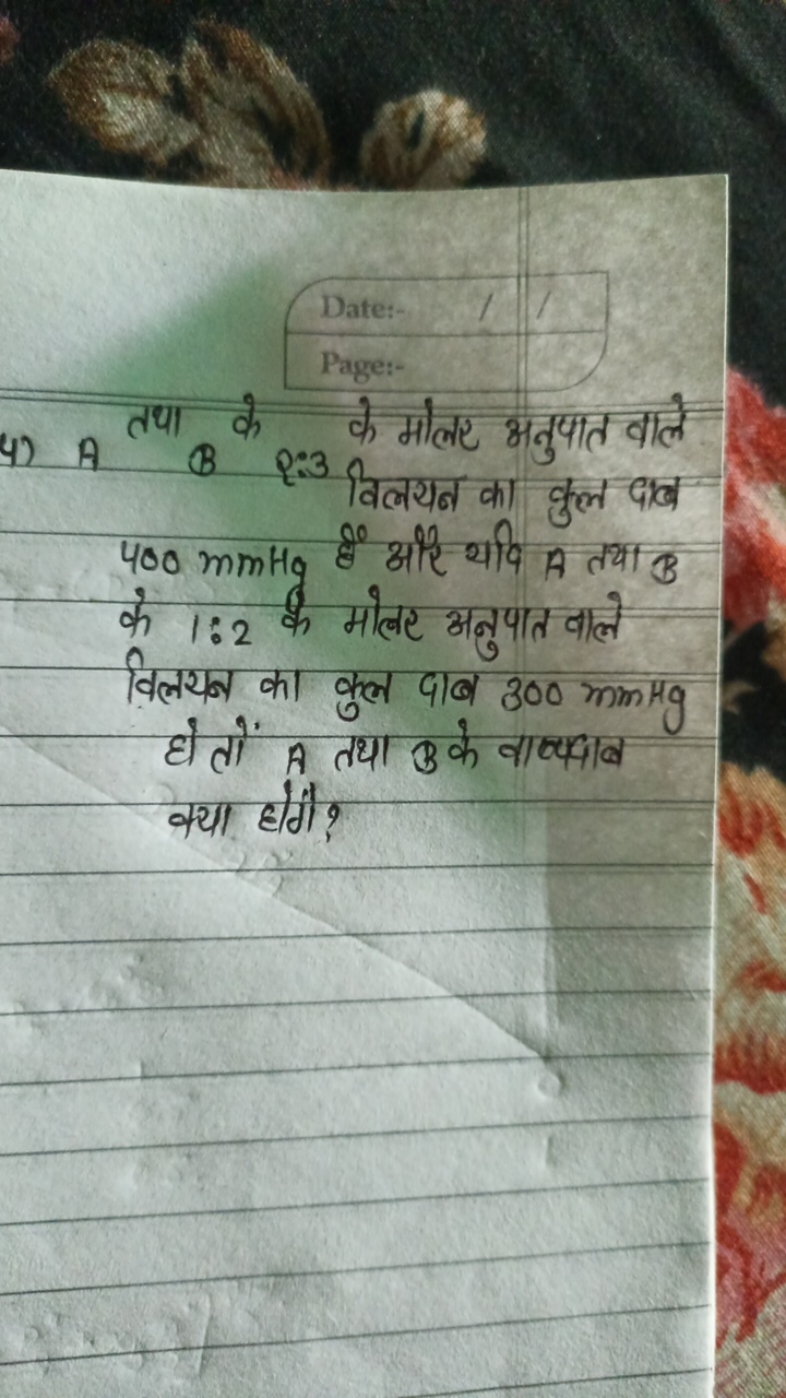 Date:- / /
Page:-
4) A तथा B के २:3 के मोलर अनुपात वाले
विलयन का कुल दाब
400 mmHg हैं और यदि A तथा B
के 1:2 के मोलर अनुपात वाले
विलयन का कुल दाब 300 mmHg
हो तों A तथा B के वाष्पदाब
क्या होंगे?